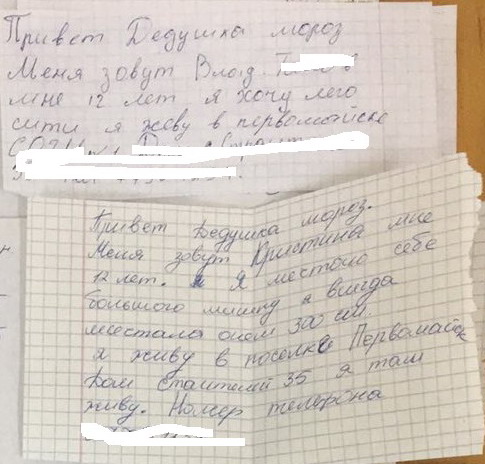 Привет Дедушка мороз
Меня зовут Влад.
мне 12 лет я хочу лего
сити я жеву в первомайске
Привет Дедушка мороз.
Меня зовут Кристина мне
12 лет. Я местаю себе
большого мишку я всигда
места­ла о нем 300 см.
я живу в поселке Первомайск
Дом 35 я там
живу. Номер телефона